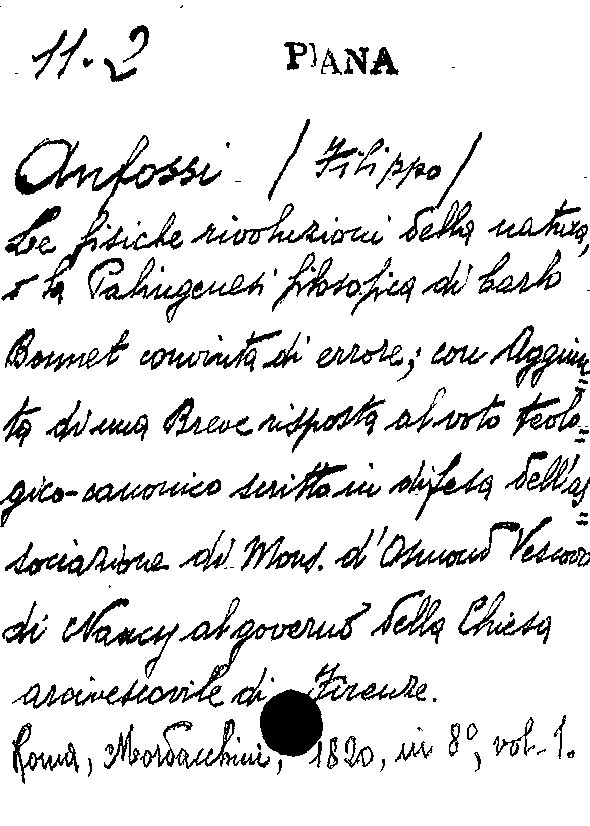 11.2 PIANA
Anfossi (Filippo)
Le fisiche rivoluzioni della natura,
o la Palingenesi filosofica di Carlo
Bonnet convinta di errore; con Aggiun=
ta di una Breve risposta al voto teolo=
gico-canonico scritto in difesa dell'as=
sociazione di Mons. d'Osmond Vescovo
di Nancy al governo della Chiesa
arcivescovile di Firenze.
Roma, Mordacchini, 1820, in 8°, vol. 1.